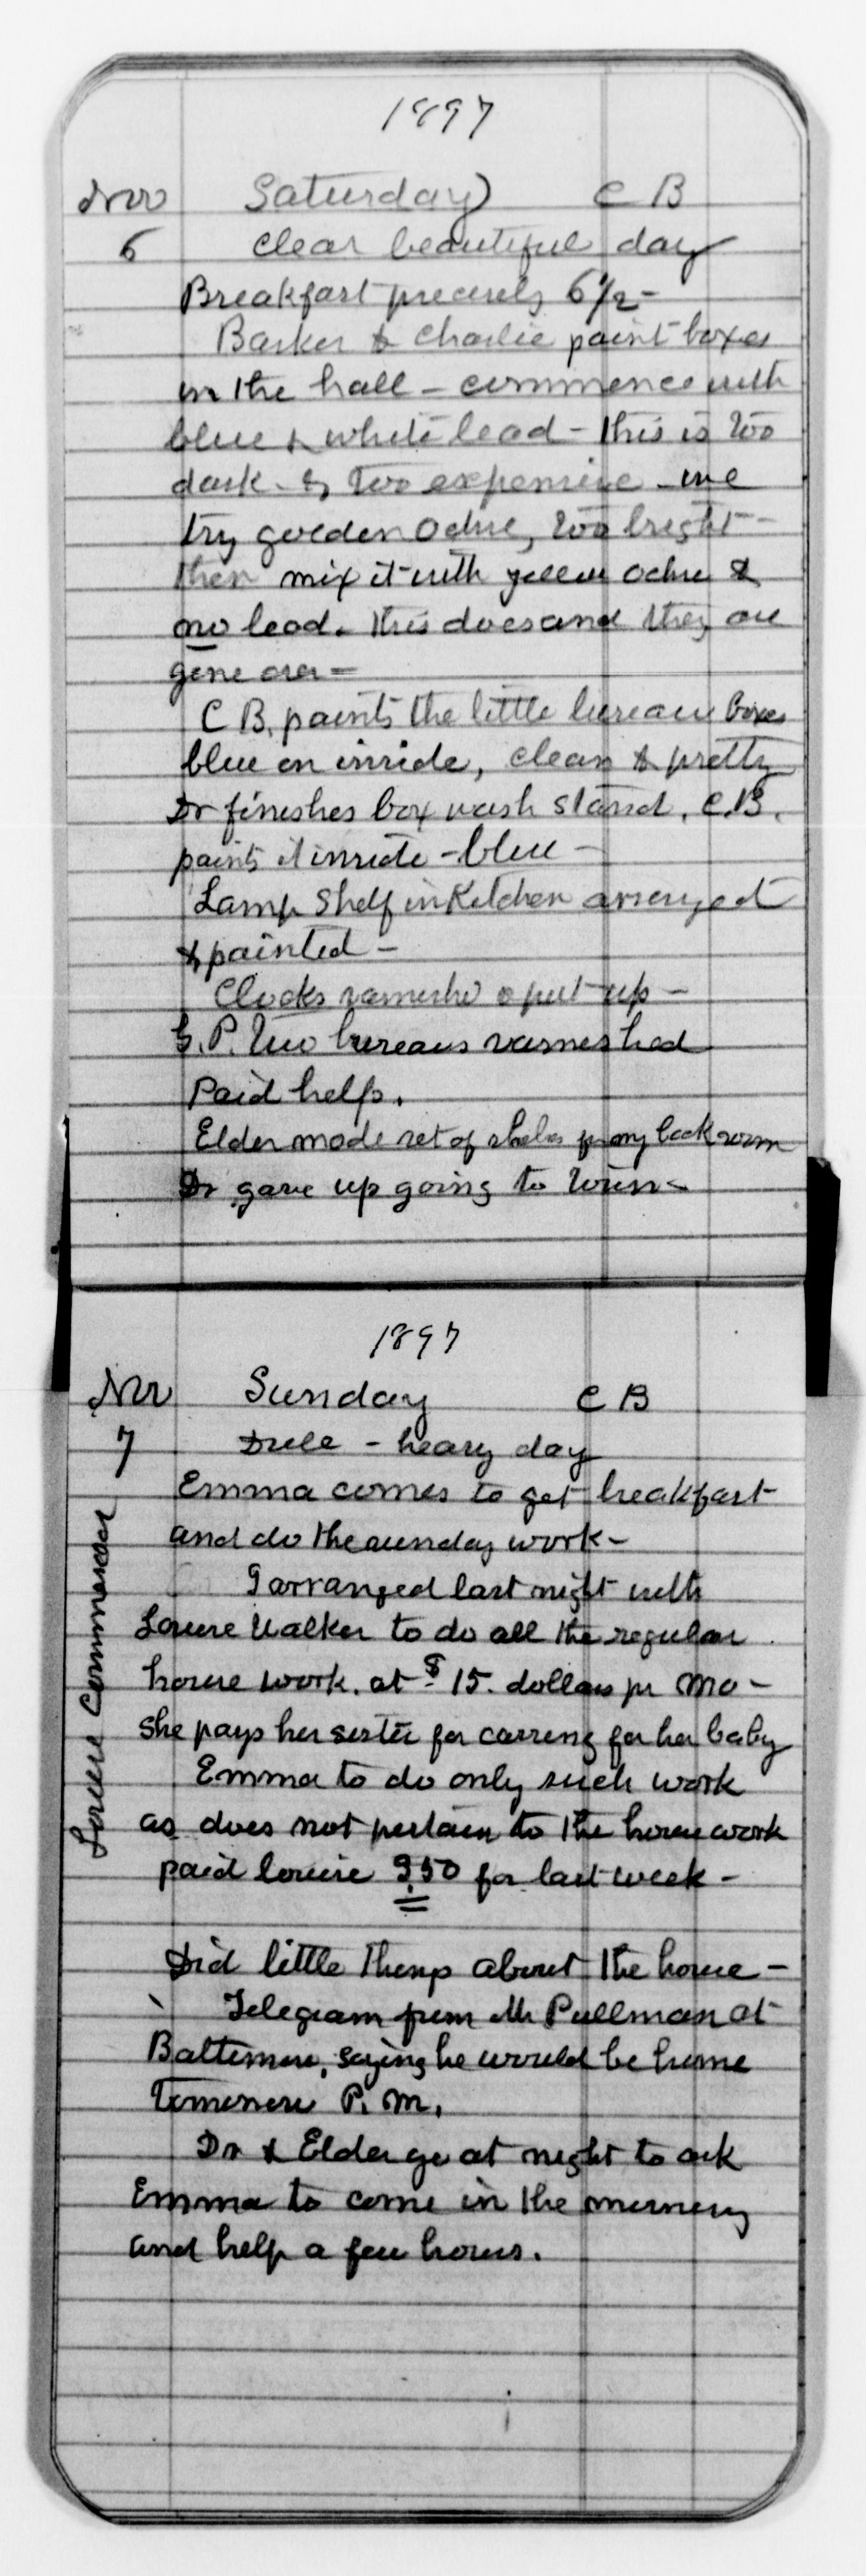 1897
Nov Saturday C B
6 Clear beautiful day
Breakfast precisely 6 1/2 -
Barker & Charlie paint boxes
in the hall - commence with
blue & white lead - this is too
dark & too expensive - we
try golden ochre, too bright -
then mix it with yellow ochre &
no lead. this does and they are
gone over -
C B. paints the little bureau boxes
blue on inside, clean & pretty
Dr finishes box wash stand. C.B.
paints it inside - blue -
Lamp Shelf in Kitchen arranged
& painted -
Clocks & put up -
G. P. Two bureaus varneshed
Paid help.
Elder made set of shelves for my back room
Dr gave up going to town -
1897
Nov Sunday C B
7 Dull - heavy day
Emma comes to get breakfast
and do the sunday work -
I arranged last night with
Louise Walker to do all the regular
house work. at $15. dollars pr mo -
She pays her sister for carreng for her baby
Emma to do only such work
as does not pertain to the house work
paid louise 3.50 for last week -
Louise Commenced
Did little things about the house -
Telegram from Mr Pullman at
Baltimore, saying he would be home
tomorrow P. M.
Dr & Elder go at night to ask
Emma to come in the morning
and help a few hours.